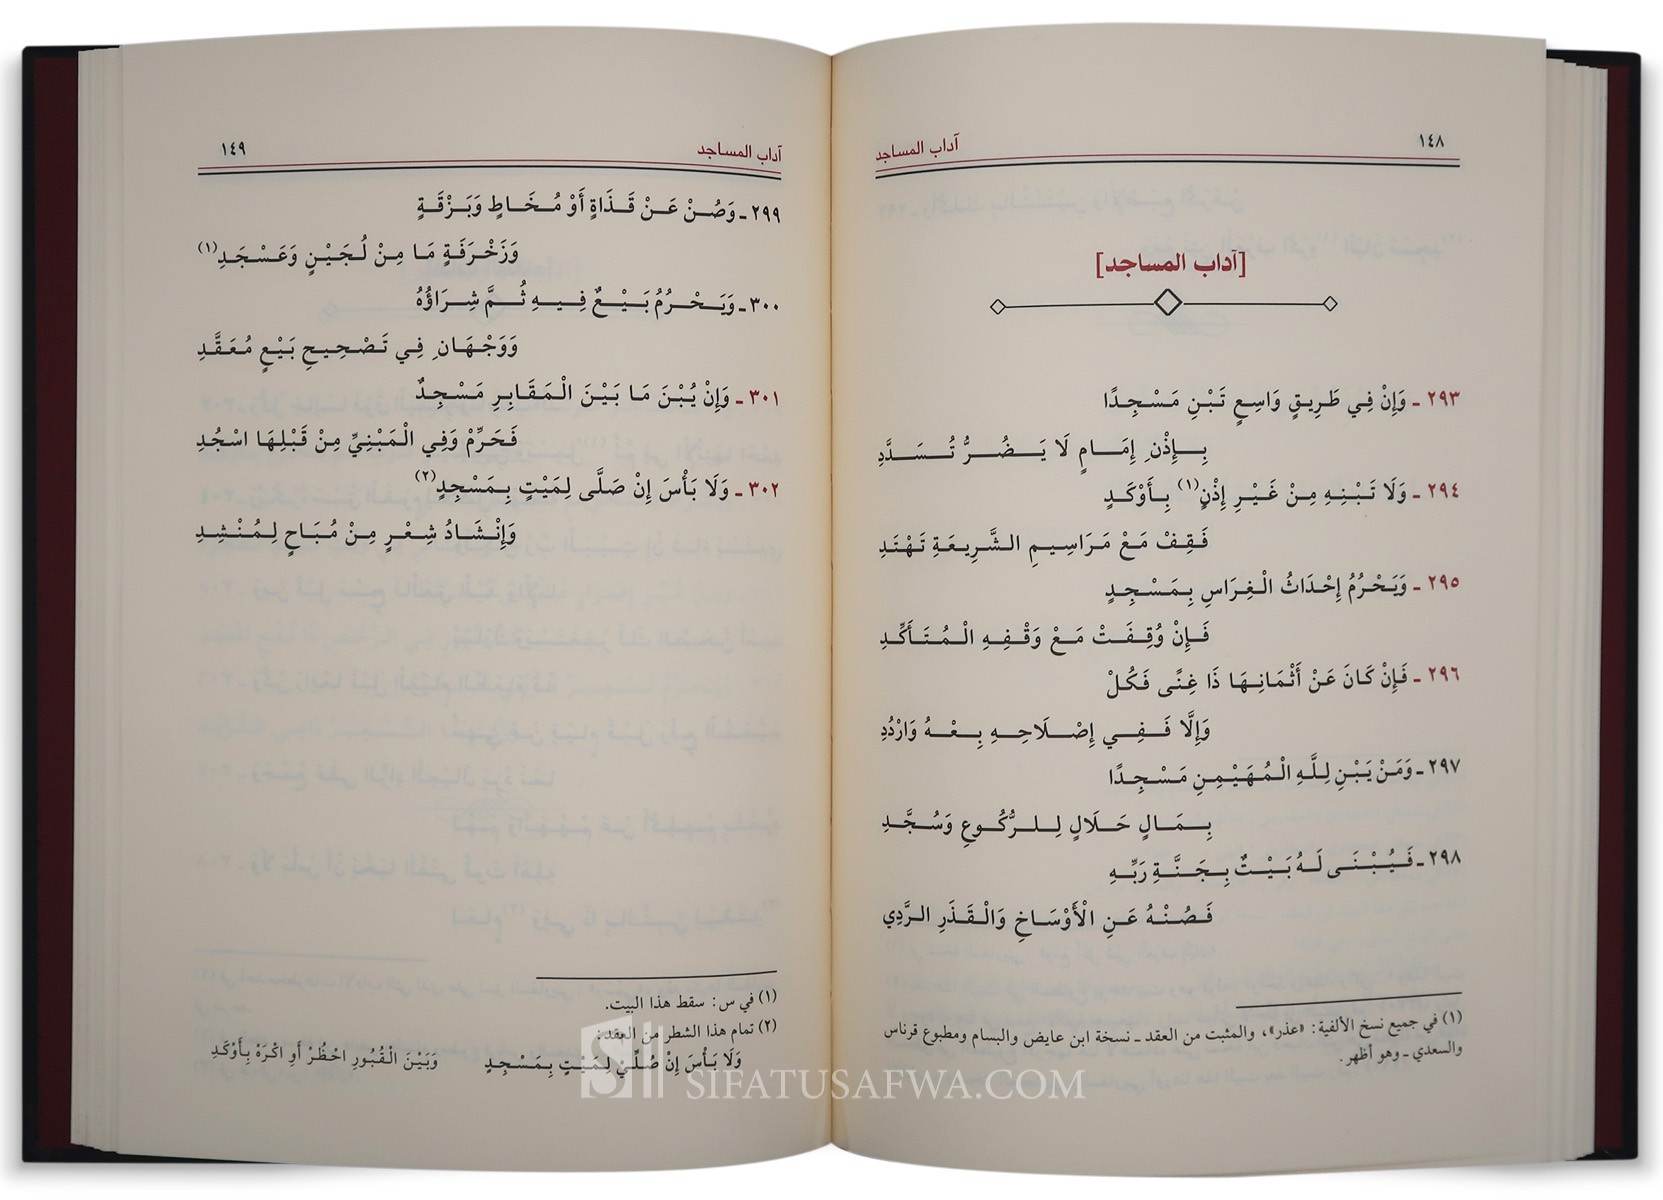 ١٤٨
آداب المساجد
[آداب المساجد]
٢٩٣ ـ وَإِنْ فِي طَرِيقٍ وَاسِعٍ تَبْنِ مَسْجِدًا
بِإِذْنِ إِمَامٍ لَا يَضُرُّ تُسَدَّدِ
٢٩٤ ـ وَلَا تَبْنِهِ مِنْ غَيْرِ إِذْنٍ(١) بِأَوْكَدٍ
فَقِفْ مَعْ مَرَاسِيمِ الشَّرِيعَةِ تَهْتَدِ
٢٩٥ ـ وَيَحْرُمُ إِحْدَاثُ الْغِرَاسِ بِمَسْجِدٍ
فَإِنْ وُقِفَتْ مَعْ وَقْفِهِ الْمُتَأَكِّدِ
٢٩٦ ـ فَإِنْ كَانَ عَنْ أَثْمَانِهَا ذَا غِنًى فَكُلْ
وَإِلَّا فَفِي إِصْلَاحِهِ بِعْهُ وَارْدُدِ
٢٩٧ ـ وَمَنْ يَبْنِ لِلَّهِ الْمُهَيْمِنِ مَسْجِدًا
بِمَالٍ حَلَالٍ لِلرُّكُوعِ وَسُجَّدِ
٢٩٨ ـ فَيُبْنَى لَهُ بَيْتٌ بِجَنَّةِ رَبِّهِ
فَصُنْهُ عَنِ الْأَوْسَاخِ وَالْقَذَرِ الرَّدِي
(١) في جميع نسخ الألفية: «عذر»، والمثبت من العقد ـ نسخة ابن عايض والبسام ومطبوع قرناس
والسعدي ـ وهو أظهر.
آداب المساجد
١٤٩
٢٩٩ ـ وَصُنْ عَنْ قَذَاةٍ أَوْ مُخَاطٍ وَبَزْقَةٍ
وَزَخْرَفَةٍ مَا مِنْ لُجَيْنٍ وَعَسْجَدِ(١)
٣٠٠ ـ وَيَحْرُمُ بَيْعٌ فِيهِ ثُمَّ شِرَاؤُهُ
وَوَجْهَانِ فِي تَصْحِيحِ بَيْعٍ مُعَقَّدِ
٣٠١ ـ وَإِنْ يُبْنَ مَا بَيْنَ الْمَقَابِرِ مَسْجِدٌ
فَحَرِّمْ وَفِي الْمَبْنِيِّ مِنْ قَبْلِهَا اسْجُدِ
٣٠٢ ـ وَلَا بَأْسَ إِنْ صَلَّى لِمَيْتٍ بِمَسْجِدٍ(٢)
وَإِنْشَادُ شِعْرٍ مِنْ مُبَاحٍ لِمُنْشِدِ
(١) في س: سقط هذا البيت.
(٢) تمام هذا الشطر من العقد:
وَلَا بَأْسَ إِنْ صُلِّيْ لِمَيْتٍ بِمَسْجِدٍ وَبَيْنَ الْقُبُورِ احْظُرْ أَوِ اكْرَهْ بِأَوْكَدِ
SIFATUSAFWA.COM